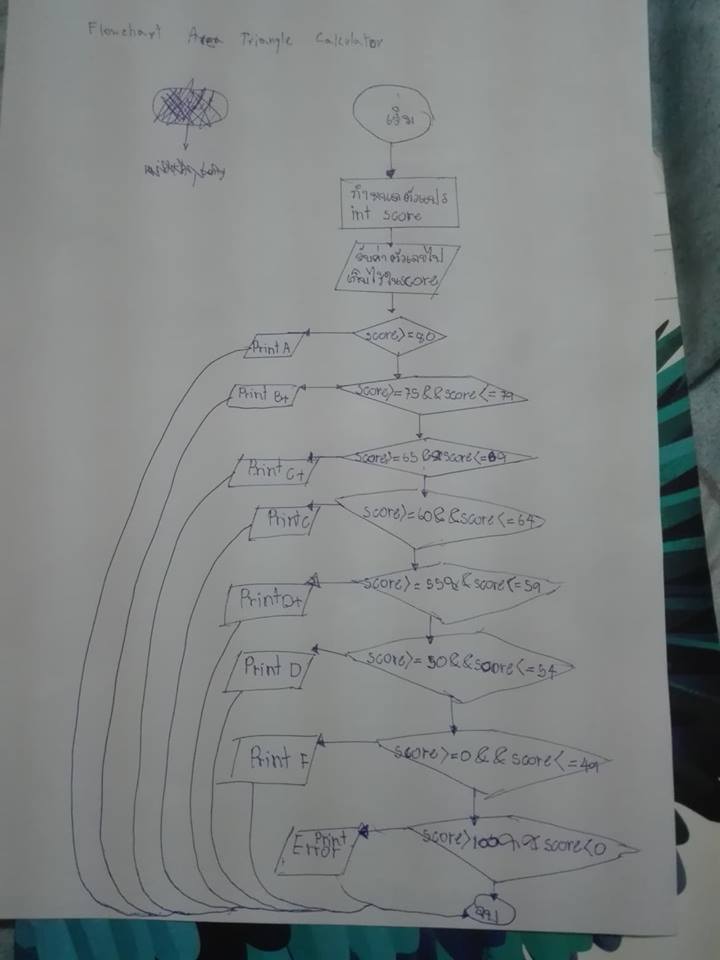 Flowchart Area Triangle Calculator
เริ่ม
กำหนดตัวแปร
int score
รับค่าตัวเลขไป
เก็บไว้ในscore
score>=80
Print A
score>=75&&score<=79
Print B+
score>=65&&score<=69
Print C+
score>=60&&score<=64
Print C
score>=55&&score<=59
Print D+
score>=50&&score<=54
Print D
score>=0&&score<=49
Print F
score>100&&score<0
Print
Error
จบ